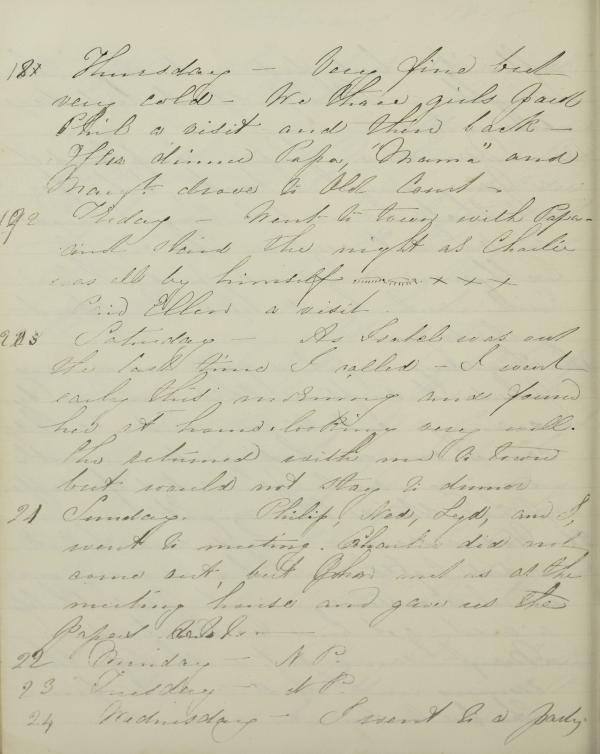 18 Thursday — Very fine but
very cold — We three girls paid
Phil a visit and then back —
After dinner Papa, "Mama" and
Mary drove to Old Court —
19 Friday — Went to town with Papa —
and staid the night as Charlie
was all by himself × × ×
Paid Ellen a visit.
20 Saturday — As Isabel was out
the last time I called — I went
early this morning and found
her at home looking very well.
She returned with me to town
but would not stay to dinner
21 Sunday. Philip, Ned, Lyd, and I,
went to meeting. Charlie did not
come out, but John met us at the
meeting house and gave us the
papers
22 Munday — N P.
23 Tuesday — N P
24 Wednesday — I went to a party